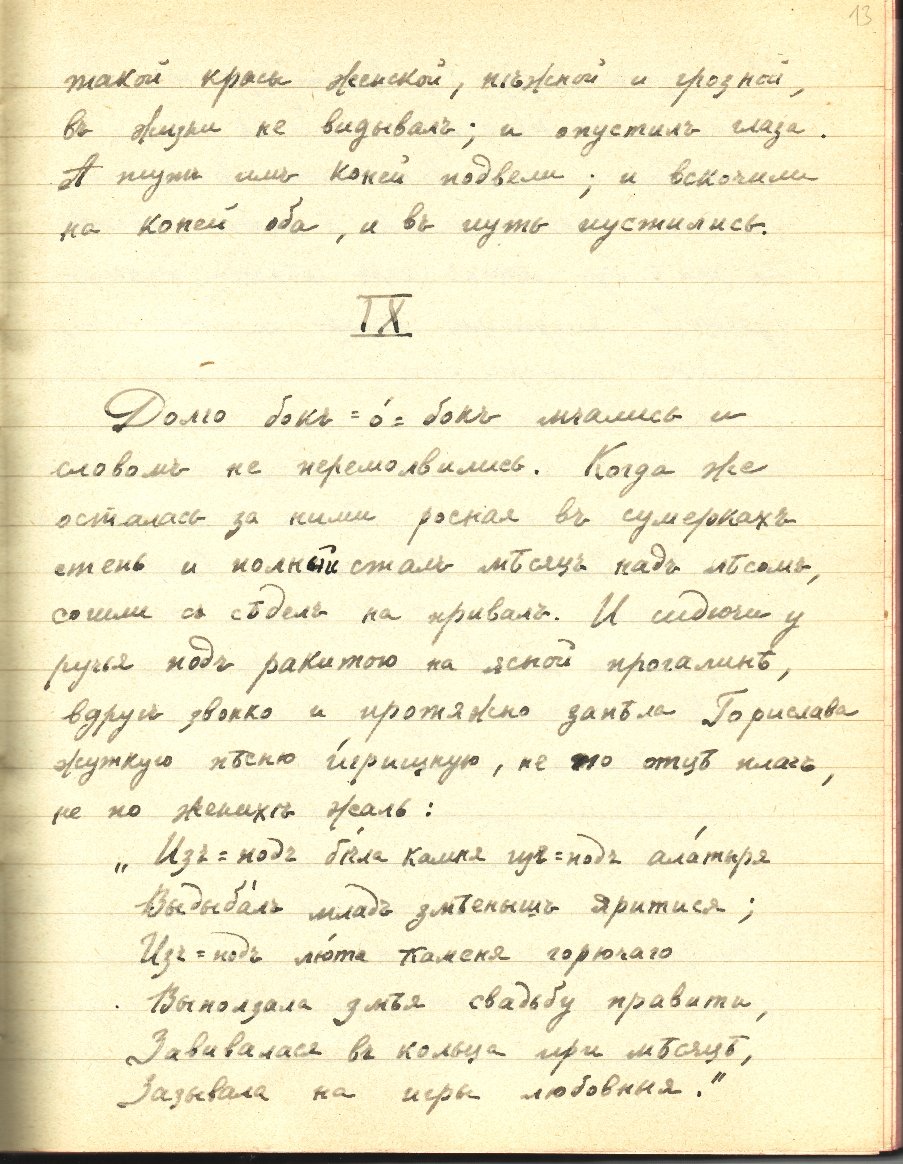 13
такой красы женской, нѣжной и грозной,
въ жизни не видывалъ; и опустилъ глаза.
А тутъ имъ коней подвели; и вскочили
на коней оба, и въ путь пустились.
IX
Долго бокъ=о́=бокъ мчались и
словомъ не перемолвились. Когда же
осталась за ними росная въ сумеркахъ
степь и полный сталъ мѣсяцъ надъ лѣсомъ,
сошли съ сѣделъ на привалъ. И сидючи у
ручья подъ ракитою на ясной прогалинѣ,
вдругъ звонко и протяжно запѣла Горислава
жуткую пѣсню и́грищную, не по отцѣ плачъ,
не по женихѣ жаль:
„Изъ=подъ бѣ́ла камня изъ=подъ ала́тыря
Выдыба́лъ младъ змѣенышъ яритися;
Изъ=подъ лю́та каменя горючаго
Выползала змѣя свадьбу правити,
Завивалася въ кольца при мѣсяцѣ,
Зазывала на игры любовныя."